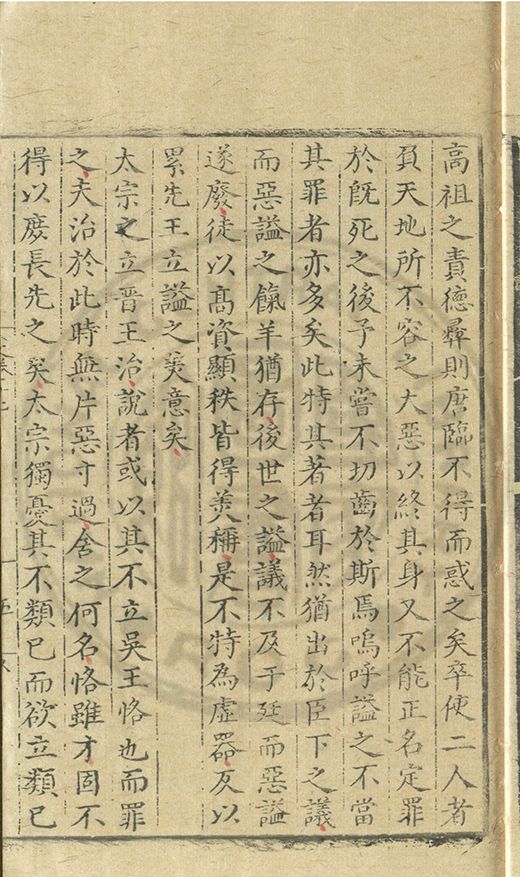 高祖之責德彛則唐臨不得而惑之矣卒使二人者
負天地所不容之大惡以終其身又不能正名定罪
於旣死之後予未嘗不切齒於斯焉嗚呼謚之不當
其罪者亦多矣此特其著者耳然猶出於臣下之議
而惡謚之餼羊猶存後世之謚議不及于廷而惡謚
遂廢徒以髙資顯秩皆得美稱是不特為虛器反以
累先王立謚之美意矣
太宗之立晋王治說者或以其不立吳王恪也而罪
之夫治於此時無片惡寸過舍之何名恪雖才固不
得以庻長先之矣太宗獨憂其不類已而欲立類已